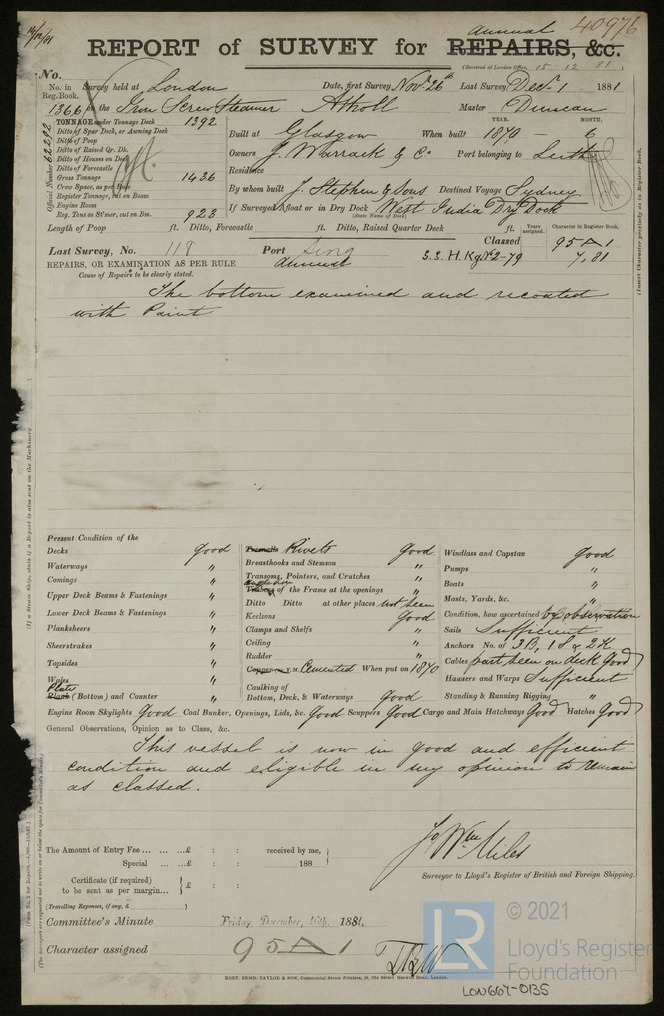 16/12/81
annual 40976
REPORT of SURVEY for REPAIRS, &c.
(Received at London Office, 15-12 81.)
No.
No. in Reg. Book. Survey held at London Date, first Survey Novr 26th Last Survey Decr 1 1881
1366 on the Iron Screw Steamer Atholl Master Duncan
TONNAGE under Tonnage Deck 1392
Ditto of Spar Deck, or Awning Deck
Ditto of Poop
Ditto of Raised Qr. Dk.
Ditto of Houses on Deck
Ditto of Forecastle
Gross Tonnage 1436
Crew Space, as per Rule
Register Tonnage, cut on Beam
Engine Room
Reg. Tons as St'mer, cut on Bm. 923
Official Number 62292
YEAR. MONTH.
Built at Glasgow When built 1870 – 6
Owners J. Warrack & Co Port belonging to Leith
Residence
By whom built J. Stephen & Sons Destined Voyage Sydney
If Surveyed Afloat or in Dry Dock West India Dry Dock
(State Name of Dock)
Length of Poop ft. Ditto, Forecastle ft. Ditto, Raised Quarter Deck ft.
Years assigned. Character in Register Book.
Classed 95 A 1
7,81
(Insert Character precisely as in Register Book.
Last Survey, No. 118 Port Sing
annual S.S. H.Kg No2-79
REPAIRS, OR EXAMINATION AS PER RULE
Cause of Repairs to be clearly stated.
The bottom examined and recoated
with Paint
(If a Steam Ship, state if a Report is also sent on the Machinery.
Present Condition of the
Decks good
Waterways "
Comings "
Upper Deck Beams & Fastenings "
Lower Deck Beams & Fastenings "
Planksheers "
Sheerstrakes "
Topsides "
Wales "
Plate
Plank (Bottom) and Counter "
Treenails Rivets good
Breasthooks and Stemson "
Transoms, Pointers, and Crutches "
Timbers of the Frame at the openings "
Ditto Ditto at other places not seen
Keelsons good
Clamps and Shelfs "
Ceiling "
Rudder "
Copper or Y.M. Cemented When put on 1870
Caulking of
Bottom, Deck, & Waterways good
Windlass and Capstan good
Pumps "
Boats "
Masts, Yards, &c. "
Condition, how ascertained by observation
Sails Sufficient
Anchors No. of 3B, 1S & 2K
Cables part seen on deck Good
Hawsers and Warps Sufficient
Standing & Running Rigging "
Engine Room Skylights Good Coal Bunker, Openings, Lids, &c. Good Scuppers Good Cargo and Main Hatchways Good Hatches Good
General Observations, Opinion as to Class, &c.
This vessel is now in good and efficient
condition and eligible in my opinion to remain
as classed.
The Amount of Entry Fee ... ... ...£ : : received by me,
Special ... ...£ : : 188
Certificate (if required)
to be sent as per margin... £ : :
(Travelling Expenses, if any, £ )
Jo Wm Miles
Surveyor to Lloyd's Register of British and Foreign Shipping.
Committee's Minute Friday, December, 16th, 1881.
Character assigned 95 A 1
© 2021
LR
Lloyd's Register
Foundation
LON667-0135